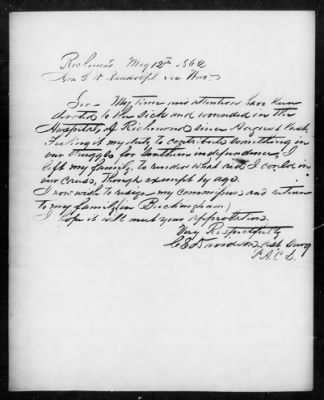 Richmond, Aug 12th 1862
Hon G W Randolph Sec War
Sir – My time and attention have been
devoted to the sick and wounded in the
Hospitals of Richmond since August last.
Feeling it my duty to contribute something in
our struggle for Southern independence, I
left my family, to render what aid I could in
our cause, though exempt by age.
I now wish to resign my commission and return
to my family (in Buckingham)
I hope it will meet your approbation.
Very Respectfully
C E Davidson Asst Surg
P. A. C. S.